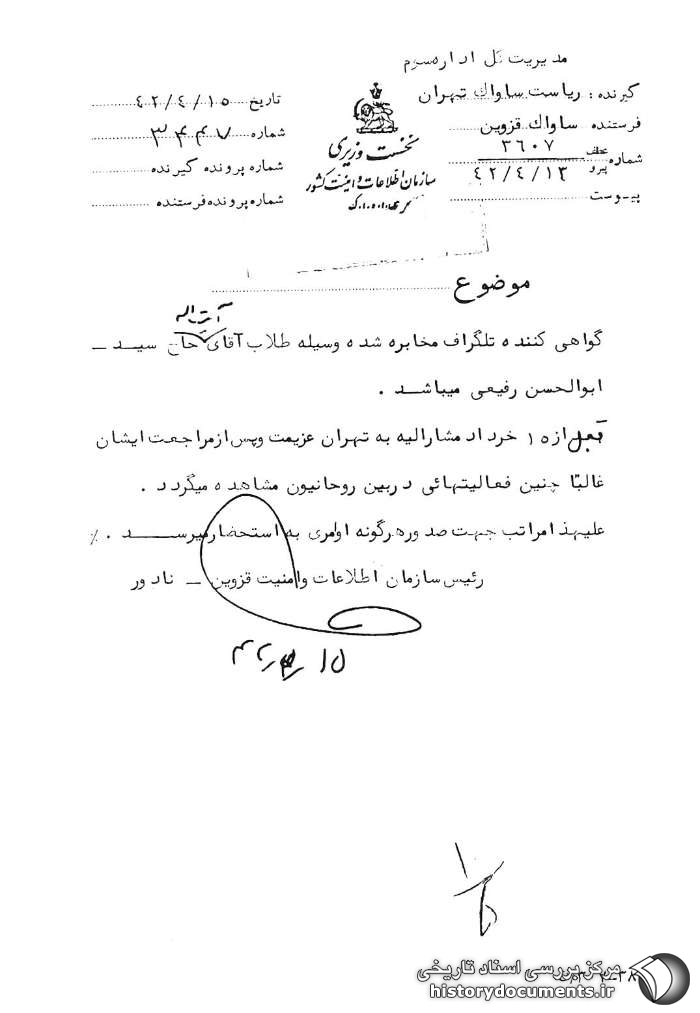 مدیریت کل اداره سوم
گیرنده : ریاست ساواك تهران
فرستنده ساواك قزوین
شماره عطف ۳٦۰۷
پیرو ٤۲/٤/۱۳
پیوست
نخست وزیری
سازمان اطلاعات و امنیت کشور
س.ا.و.ا.ك
تاریخ ٤۲/٤/۱٥
شماره ۳۴۴۷
شماره پرونده گیرنده
شماره پرونده فرستنده
موضوع
آیت اله
گواهی کننده تلگراف مخابره شده وسیله طلاب آقای حاج سید ـ
ابوالحسن رفیعی میباشد .
قبل از ۱٥ خرداد مشارالیه به تهران عزیمت و پس از مراجعت ایشان
غالبًا چنین فعالیتهائی در بین روحانیون مشاهده میگردد .
علیهذا مراتب جهت صدور هرگونه اوامری به استحضار میرسد . ٪
رئیس سازمان اطلاعات و امنیت قزوین ـ نادور
مرکز بررسی اسناد تاریخی
historydocuments.ir